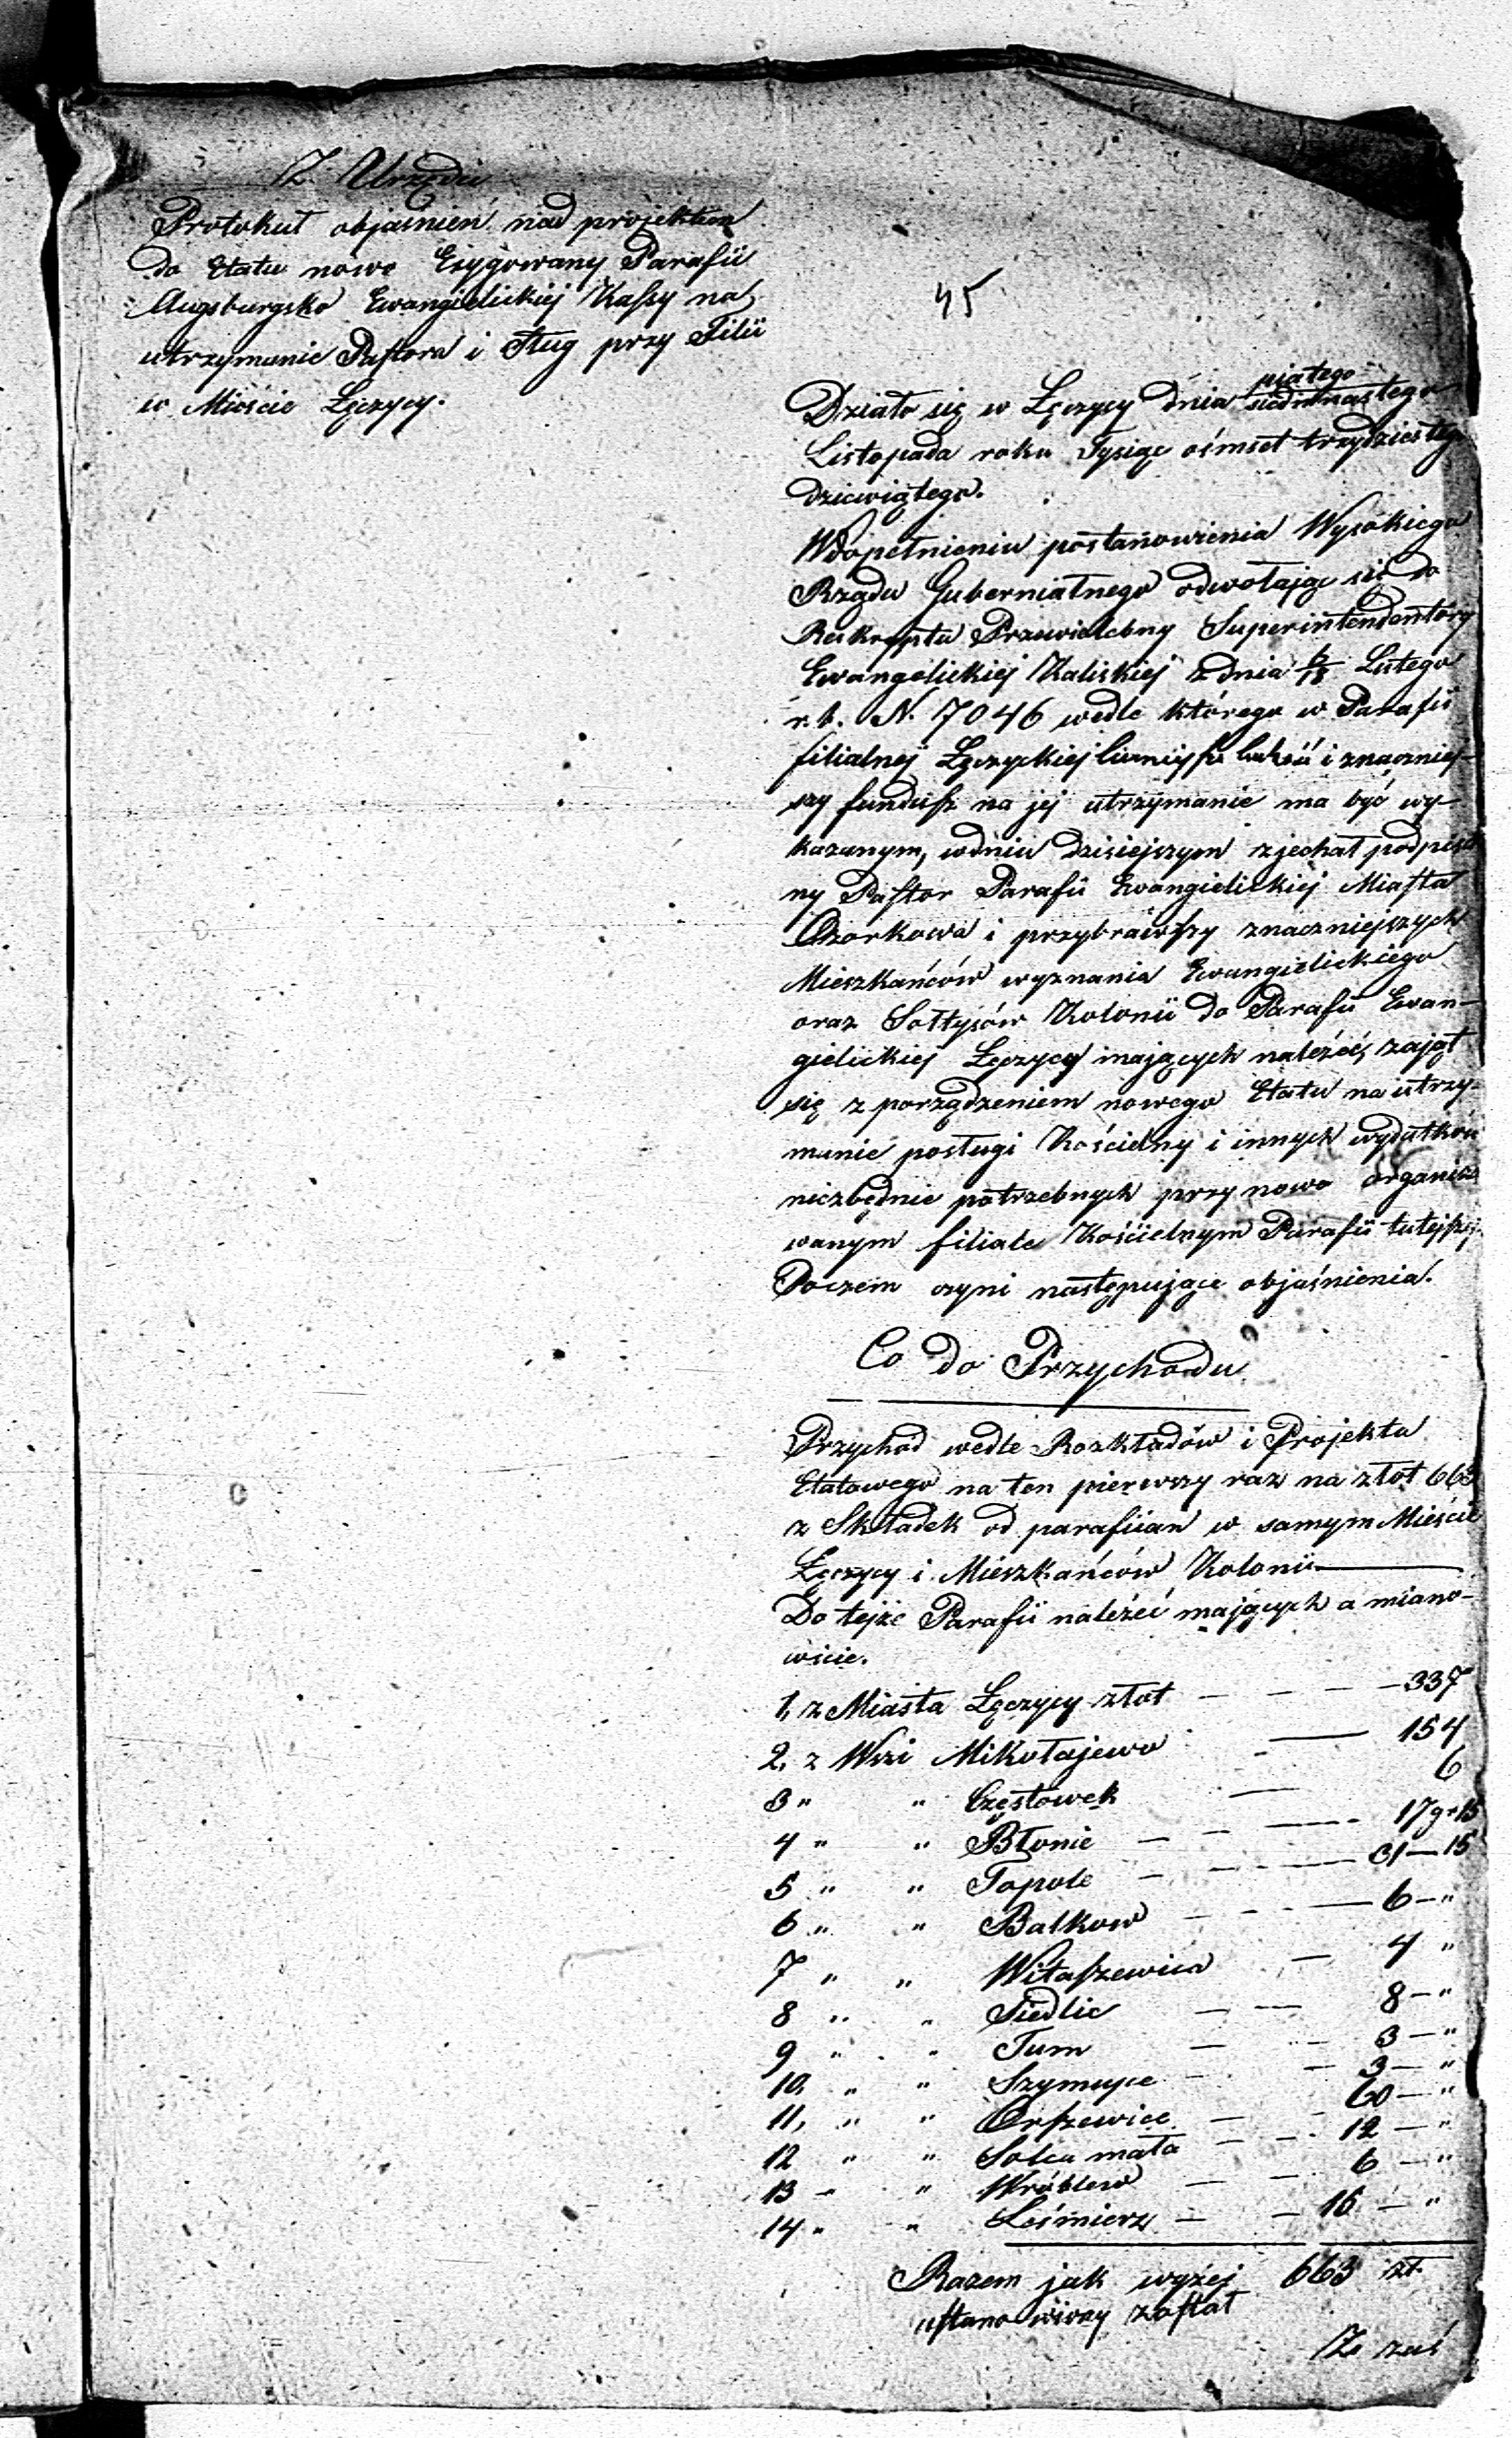 Z Urzędu
Protokuł objaśnień nad projektem
do Etatu nowo Erygowany Parafii
Augsburgsko Ewangielickiej Kassy na
utrzymanie Pastora i Sług przy Filii
w Mieście Łęczycy.
45
piątego
Działo się w Łęczycy dnia siedmnastego
Listopada roku Tysiąc ośmset trzydziestego
dziewiątego.
W dopełnieniu postanowienia Wysokiego
Rządu Gubernialnego odwołając się do
Reskryptu Przewielebny Superintendentury
Ewangelickiej Kaliskiej z dnia 6/18 Lutego
r. b. N. 7046 wedle którego w Parafii
filialnej Łęczyckiej ludność i znaczniej-
szy fundusz na jej utrzymanie ma być wy-
kazanym, w dniu dzisiejszym zjechał podpisa
ny Pastor Parafii Ewangielickiej Miasta
Ozorkowa i przybrawszy znaczniejszych
Mieszkańców wyznania Ewangielickiego
oraz Sołtysów Kolonii do Parafii Ewan-
gielickiej Łęczycy mających należeć, zajął
się z porządzeniem nowego Etatu na utrzy-
manie posługi Kościelny i innych wydatków
niezbędnie potrzebnych przy nowo organizo
wanym filiale Kościelnym Parafii tutejszej
Poczem czyni następujące objaśnienia.
Co do Przychodu
Przychód wedle Rozkładów i Projektu
Etatowego na ten pierwszy raz na złot 663
z Składek od parafiian w samym Mieście
Łęczycy i Mieszkańców Kolonii
Do tejże Parafii należeć mających a miano-
wicie.
1, z Miasta Łęczycy złot — — — — 337
2, z Wsi Mikołajewo — 154
3 " " Częstowek — 6
4 " " Błonie — — — 17 gr 15
5 " " Topole — — — 31 — 15
6 " " Balkow — — — 6 — "
7 " " Witaszewica — 4 "
8 " " Siedlic — — 8 — "
9 " " Tum — — 3 — "
10, " " Szymuyce — — 3 — "
11, " " Orszewice — 60 — "
12 " " Solca mała — — 12 — "
13 " " Wróblew — — 6 — "
14 " " Leśmierz — — 16 — "
Razem jak wyżej 663 zł.
ustanowiony został
Ze zaś